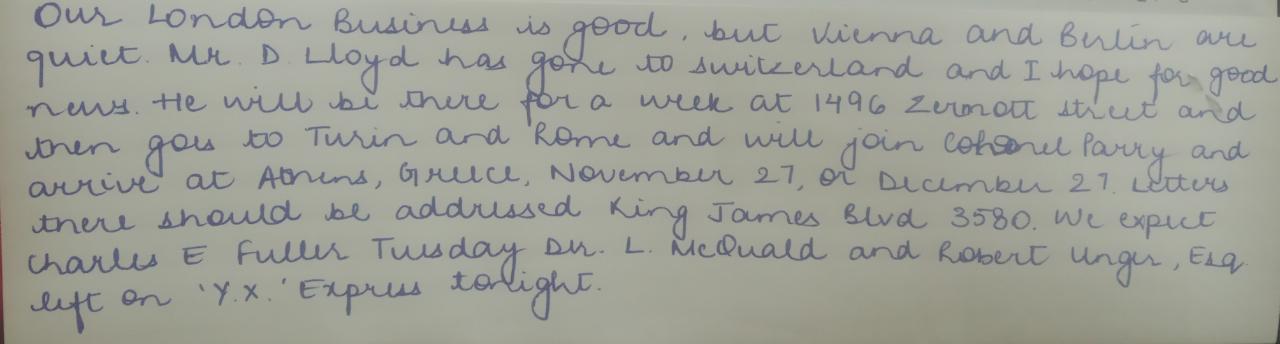 Our London Business is good, but Vienna and Berlin are
quiet. Mr. D. Lloyd has gone to Switzerland and I hope for good
news. He will be there for a week at 1496 Zermott street and
then goes to Turin and Rome and will join Colonel Parry and
arrive at Athens, Greece, November 27, or December 27. Letters
there should be addressed King James Blvd 3580. We expect
Charles E Fuller Tuesday Dr. L. McQuald and Robert Unger, Esq.
left on 'Y.X.' Express tonight.